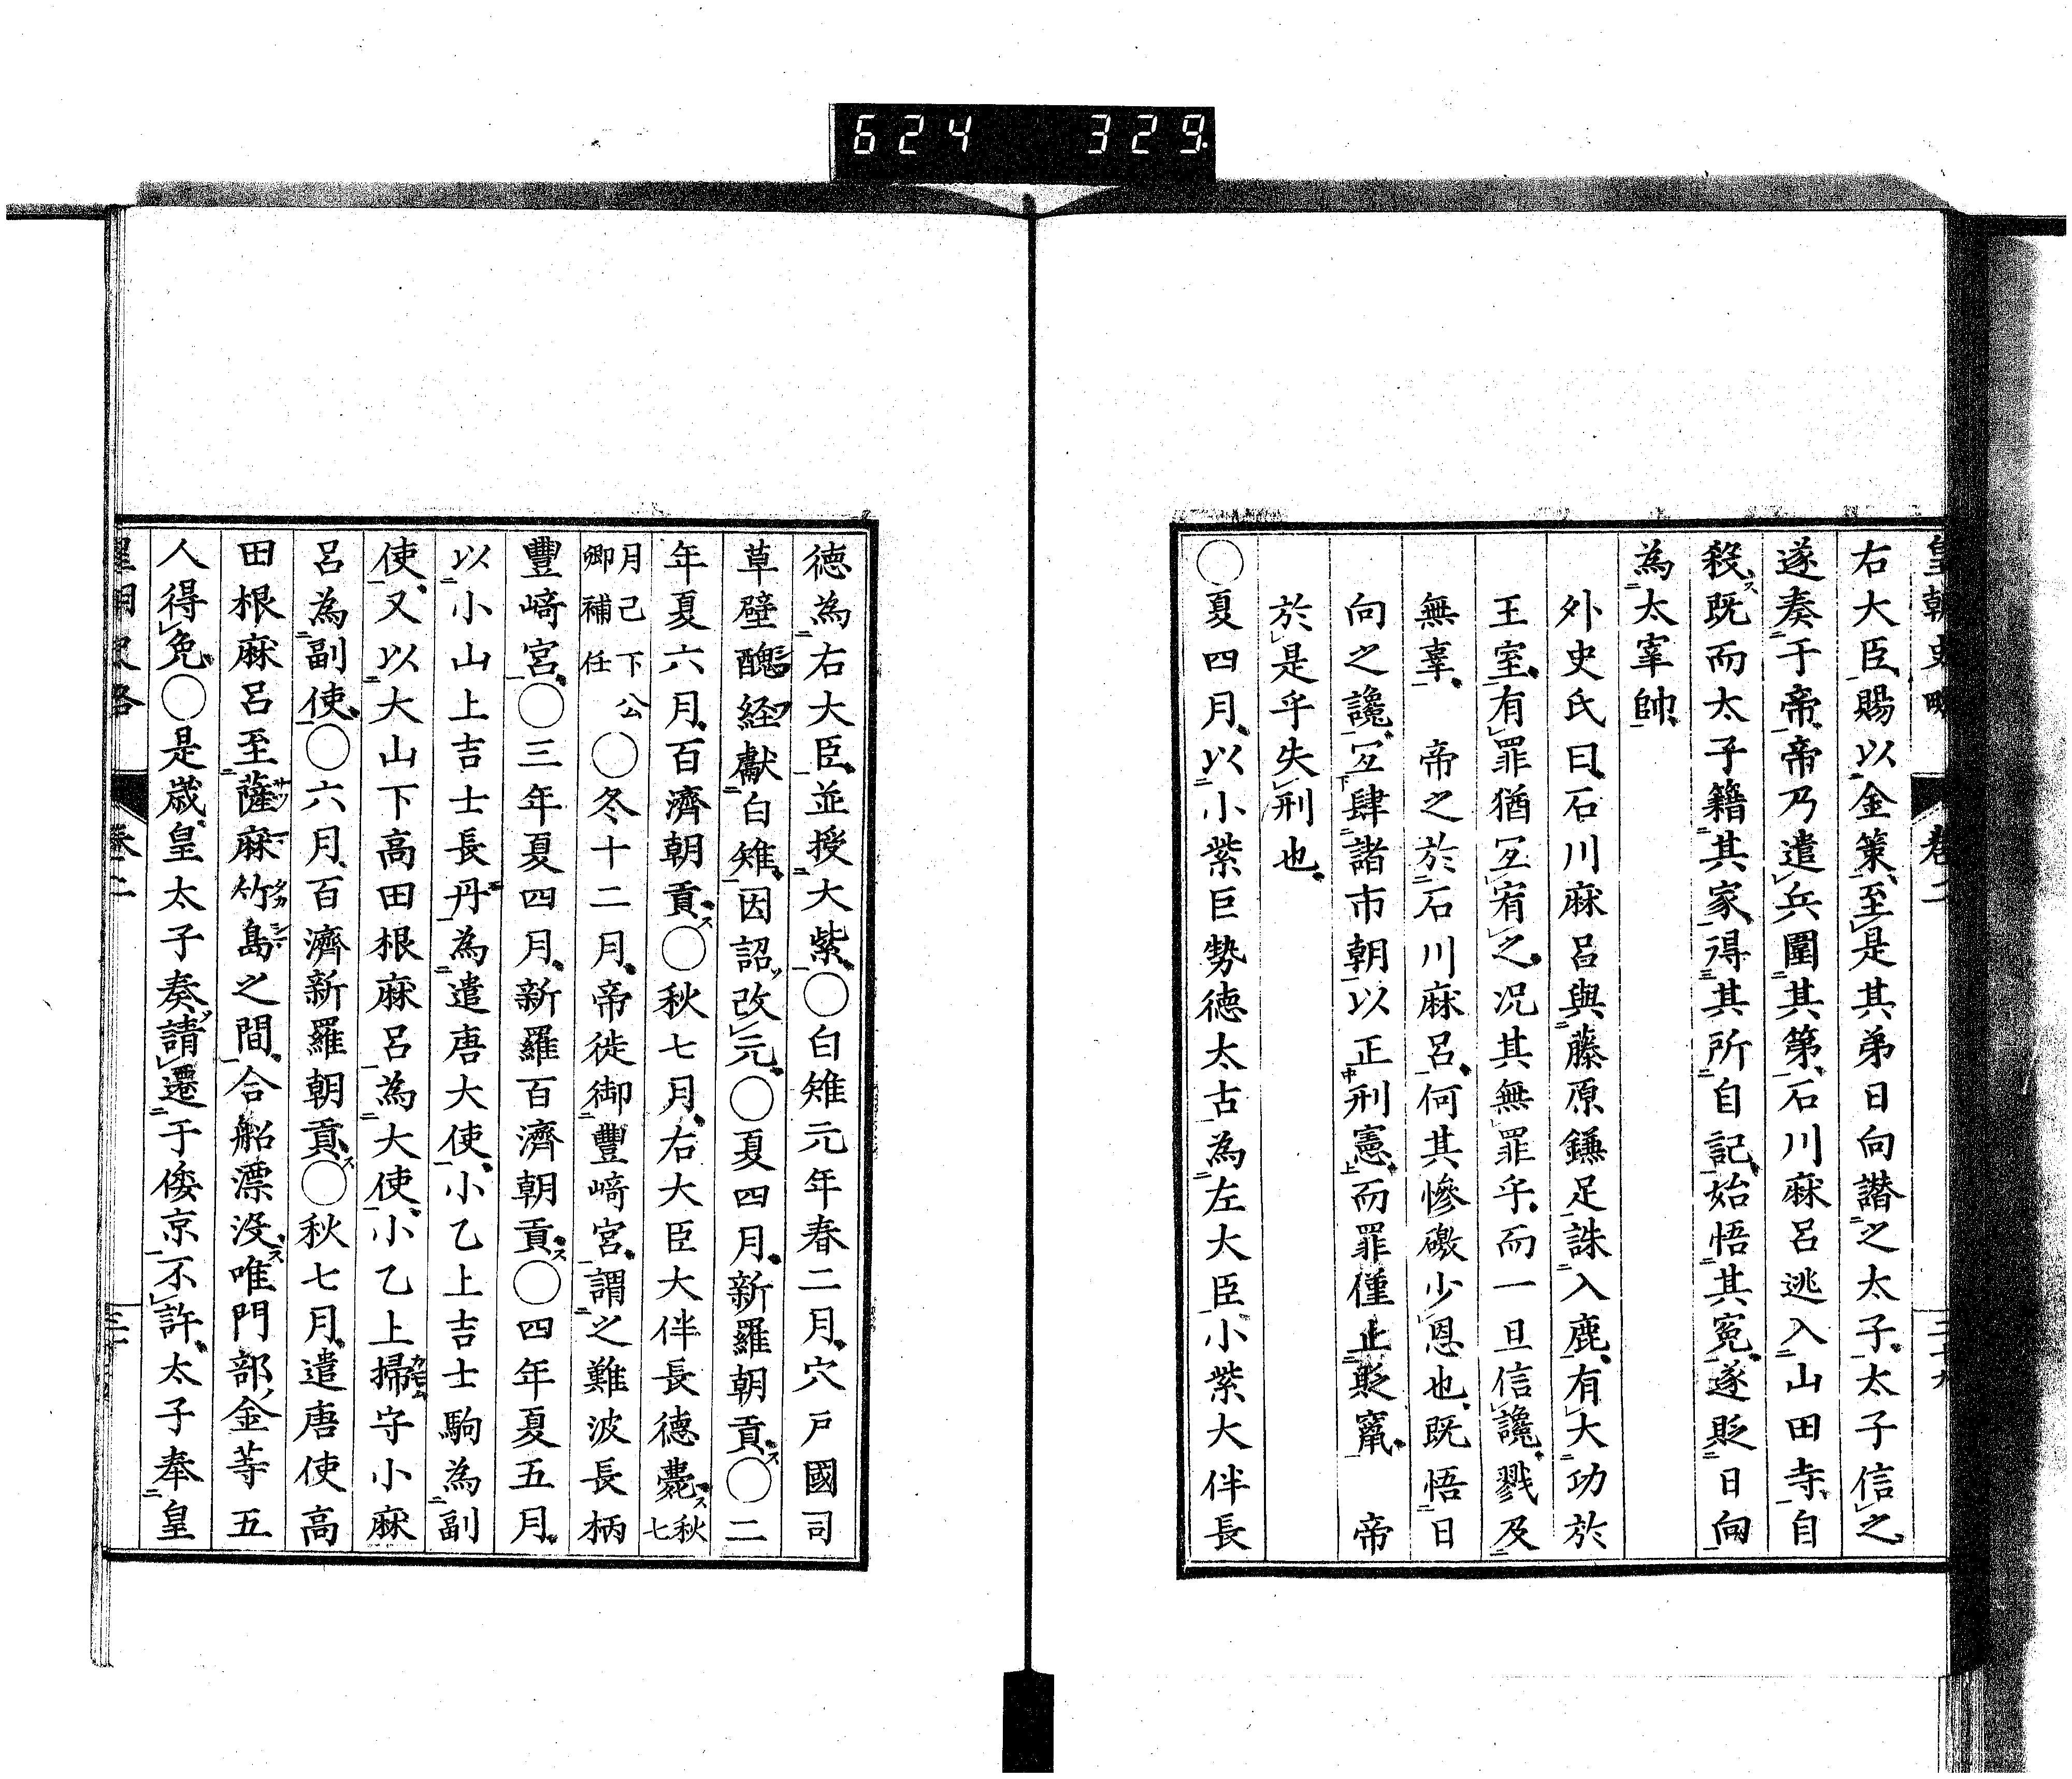 624 329
皇朝史略 卷二
右大臣賜以金策至是其弟日向譖之太子太子信之
遂奏于帝帝乃遣兵圍其第石川麻呂逃入山田寺自
殺既而太子籍其家得其所自記始悟其冤遂貶日向
為太宰帥
外史氏曰石川麻呂與藤原鎌足誅入鹿有大功於
王室有罪猶宜宥之况其無罪乎而一旦信讒戮及
無辜 帝之於石川麻呂何其慘礉少恩也既悟日
向之讒宜肆諸市朝以正刑憲而罪僅止貶竄 帝
於是乎失刑也
〇夏四月以小紫巨勢德太古為左大臣小紫大伴長
德為右大臣並授大紫〇白雉元年春二月穴戶國司
草壁醜経獻白雉因詔改元〇夏四月新羅朝貢〇二
年夏六月百濟朝貢〇秋七月右大臣大伴長德薨秋七
月己下公卿補任〇冬十二月帝徙御豐﨑宮謂之難波長柄
豐﨑宮〇三年夏四月新羅百濟朝貢〇四年夏五月
以小山上吉士長丹為遣唐大使小乙上吉士駒為副
使又以大山下高田根麻呂為大使小乙上掃守小麻
呂為副使〇六月百濟新羅朝貢〇秋七月遣唐使高
田根麻呂至薩麻竹島之間合船漂沒唯門部金等五
人得免〇是歳皇太子奏請遷于倭京不許太子奉皇